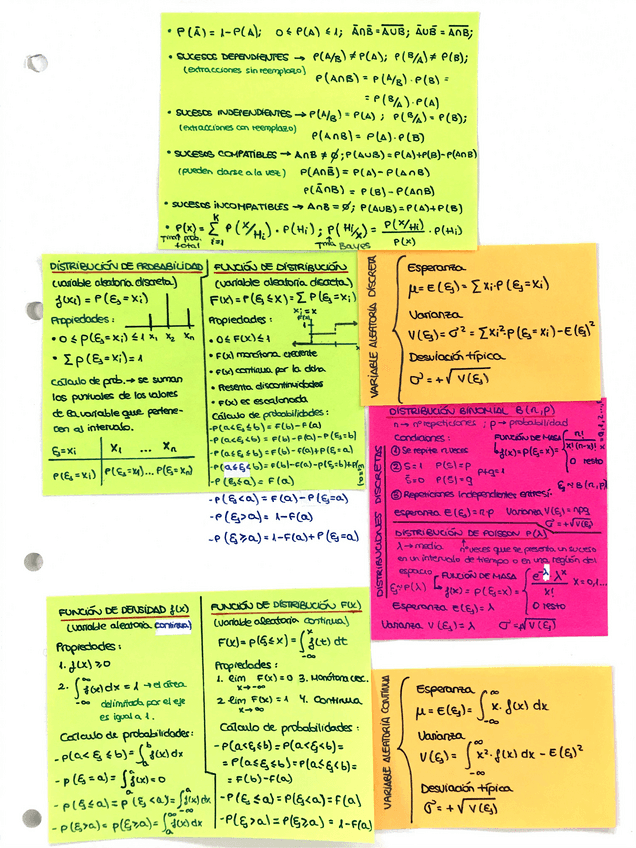 • P(Ā) = 1 - P(A); 0 ≤ P(A) ≤ 1; Ā∩B̄ = A∪B; Ā∪B̄ = A∩B;
• SUCESOS DEPENDIENTES → P(A/B) ≠ P(A); P(B/A) ≠ P(B);
(extracciones sin reemplazo) P(A∩B) = P(A/B) · P(B) =
= P(B/A) · P(A)
• SUCESOS INDEPENDIENTES → P(A/B) = P(A); P(B/A) = P(B);
(extracciones con reemplazo) P(A∩B) = P(A) · P(B)
• SUCESOS COMPATIBLES → A∩B ≠ ∅; P(A∪B) = P(A)+P(B)-P(A∩B)
(pueden darse a la vez) P(A∩B̄) = P(A) - P(A∩B)
P(Ā∩B) = P(B) - P(A∩B)
• SUCESOS INCOMPATIBLES → A∩B = ∅; P(A∪B) = P(A)+P(B)
• P(X) = Σ P(X/Hi) · P(Hi); P(Hi/X) = P(X/Hi)/P(X) · P(Hi)
K
i=1
Tma prob. total
Tma Bayes
DISTRIBUCIÓN DE PROBABILIDAD
(variable aleatoria discreta)
f(xi) = P(ξ = xi)
Propiedades:
x1 x2 xn
• 0 ≤ P(ξ = xi) ≤ 1
• Σ P(ξ = xi) = 1
Cálculo de prob. → se suman
las puntuales de los valores
de la variable que pertene-
cen al intervalo.
ξ = xi x1 ... xn
P(ξ = xi) P(ξ = x1) ... P(ξ = xn)
FUNCIÓN DE DISTRIBUCIÓN
(variable aleatoria discreta)
F(x) = P(ξ ≤ x) = Σ P(ξ = xi)
Propiedades:
• 0 ≤ F(x) ≤ 1
• F(x) monótona creciente
• F(x) continua por la dcha
• Presenta discontinuidades
• F(x) es escalonada
Cálculo de probabilidades:
- P(a<ξ≤b) = F(b) - F(a)
- P(a<ξ<b) = F(b) - F(a) - P(ξ=b)
- P(a≤ξ≤b) = F(b) - F(a) + P(ξ=a)
- P(a≤ξ<b) = F(b) - F(a) - P(ξ=b) + P(ξ=a)
- P(ξ≤a) = F(a)
- P(ξ<a) = F(a) - P(ξ=a)
- P(ξ>a) = 1 - F(a)
- P(ξ≥a) = 1 - F(a) + P(ξ=a)
VARIABLE ALEATORIA DISCRETA
Esperanza
μ = E(ξ) = Σ xi · P(ξ = xi)
Varianza
V(ξ) = σ² = Σ xi² · P(ξ = xi) - E(ξ)²
Desviación típica
σ = +√V(ξ)
DISTRIBUCIONES DISCRETAS
DISTRIBUCIÓN BINOMIAL B(n,p)
n → nº repeticiones; p → probabilidad
Condiciones:
FUNCIÓN DE MASA
① Se repite n veces
f(x) = P(ξ = x) =
n!
x!(n-x)!
0 resto
② S = 1 P(S) = p
p+q = 1
ξ = 0 P(S) = q
ξ ~ B(n,p)
③ Repeticiones independientes entre sí.
esperanza E(ξ) = n·p Varianza V(ξ) = npq
σ = +√V(ξ)
DISTRIBUCIÓN DE POISSON P(λ)
λ → media nº veces que se presenta un suceso
en un intervalo de tiempo o en una región del
espacio
ξ ~ P(λ) FUNCIÓN DE MASA
f(x) = P(ξ = x) = e^-λ λ^x / x! x = 0,1...
0 resto
Esperanza E(ξ) = λ
Varianza V(ξ) = λ σ = +√V(ξ)
FUNCIÓN DE DENSIDAD f(x)
(variable aleatoria continua)
Propiedades:
1. f(x) ≥ 0
2. ∫ f(x) dx = 1 → el área
delimitada por el eje
es igual a 1.
Cálculo de probabilidades:
- P(a<ξ≤b) = ∫ f(x) dx
- P(ξ = a) = ∫ f(x) = 0
- P(ξ≤a) = P(ξ<a) = ∫ f(x) dx
- P(ξ>a) = P(ξ≥a) = ∫ f(x) dx
FUNCIÓN DE DISTRIBUCIÓN F(x)
(variable aleatoria continua)
F(x) = P(ξ ≤ x) = ∫ f(t) dt
Propiedades:
1. lim F(x) = 0 3. Monótona crec.
x→-∞
2. lim F(x) = 1 4. Continua
x→∞
Cálculo de probabilidades:
- P(a<ξ≤b) = P(a<ξ<b) =
= P(a≤ξ≤b) = P(a≤ξ<b) =
= F(b) - F(a)
- P(ξ≤a) = P(ξ<a) = F(a)
- P(ξ>a) = P(ξ≥a) = 1 - F(a)
VARIABLE ALEATORIA CONTINUA
Esperanza
μ = E(ξ) = ∫ x · f(x) dx
Varianza
V(ξ) = ∫ x² · f(x) dx - E(ξ)²
Desviación típica
σ = +√V(ξ)